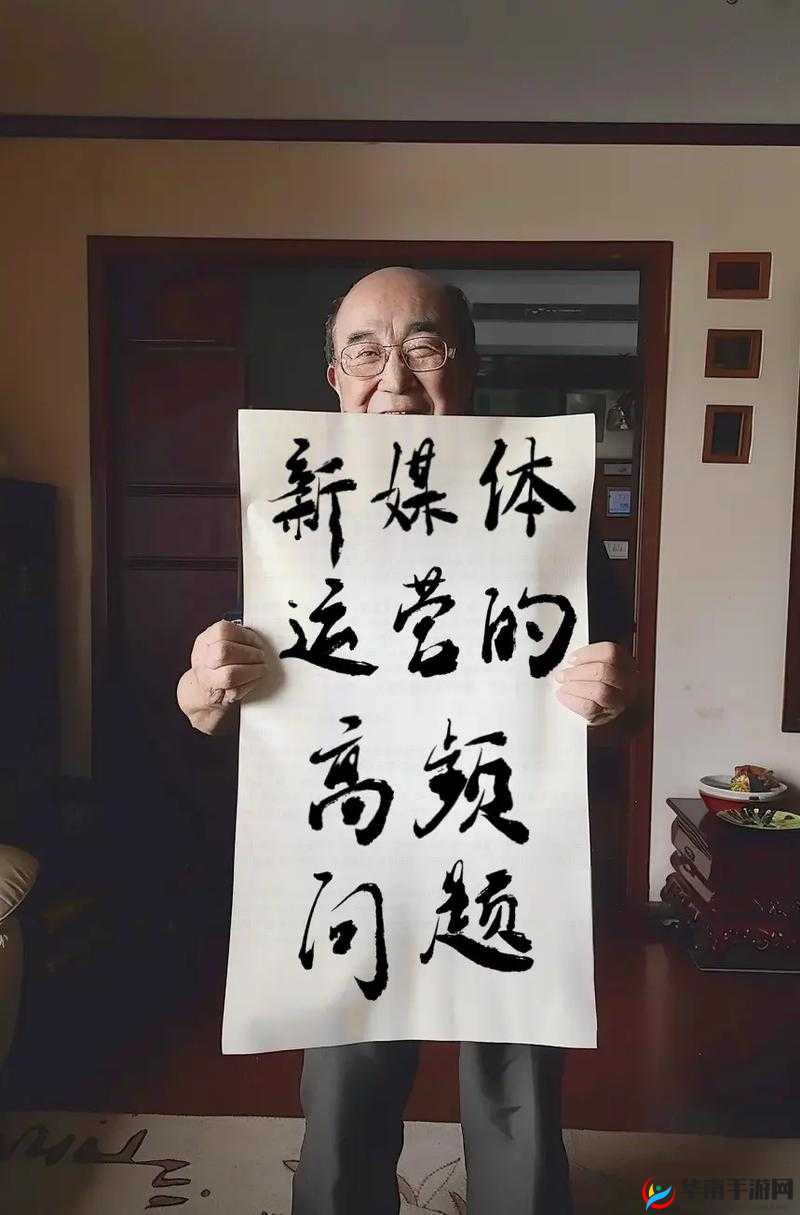 新媒体
运营的
高频
问题
华南手游网